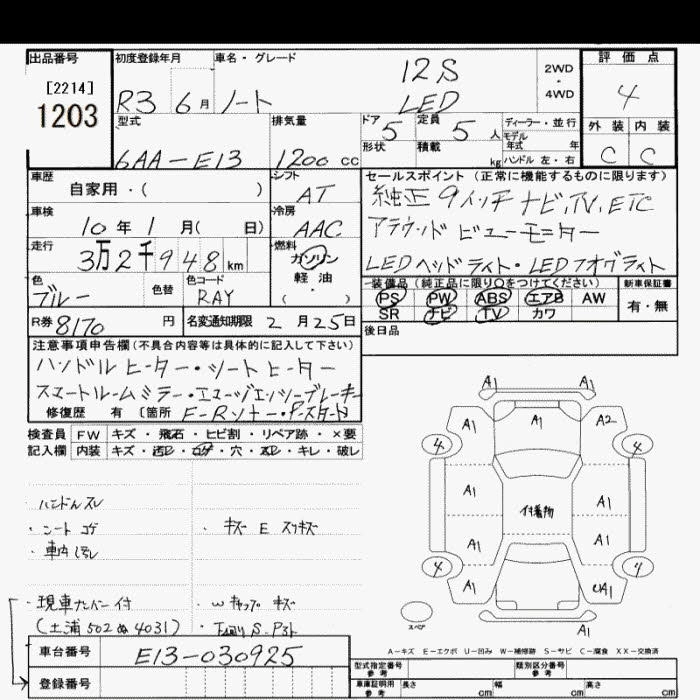 出品番号 初度登録年月 車名・グレード 評価点
[2214]
1203
R3 6月 ノート 12S LED 2WD・4WD 4
型式 排気量 ドア 定員 ディーラー・並行 外装 内装
6AA-E13 1200 cc 5 5 人 モデル年式 年 C C
形状 積載 kg ハンドル 左・右
車歴 シフト セールスポイント (正常に機能するものに限ります)
自家用・( ) AT 純正 9インチナビ,TV,ETC
車検 冷房 アラウンドビューモニター
10年 1月( 日) AAC
走行 燃料 LEDヘッドライト・LEDフォグライト
3万2千948km ガソリン 軽・油 ( ・ )
色 色替 色コード 装備品 (純正品に限り○をつけてください) 新車保証書
ブルー RAY PS PW ABS エアB AW 有・無
SR ナビ TV カワ
R券 8170 円 名変通知期限 2月25日 後日品
注意事項申告欄(不具合内容等は具体的に記入して下さい)
ハンドルヒーター・シートヒーター
スマートルームミラー・エマージェンシーブレーキ
修復歴 有 〔箇所 F-Rソナー・Pスタート
検査員 FW キズ・飛石・ヒビ割・リペア跡・×要
記入欄 内装 キズ・汚レ・コゲ・穴・スレ・キレ・破レ
ハンドルスレ
・シートコゲ ・キズ E スリキズ
・車内汚れ
・現車ナンバー付 ・Wキャップキズ
(土浦502ぬ4031)
車台番号 E13-030925
登録番号
A1 A1
A1 A1 A2
4 4
A1 付着物 A1
A1 A1
4 4
A1
スペア A1
A-キズ E-エクボ U-凹み W-補修跡 S-サビ C-腐食 XX-交換済
型式指定番号 参考 類別区分番号 参考
車庫証明用 参考 長さ cm 幅 cm 高さ cm